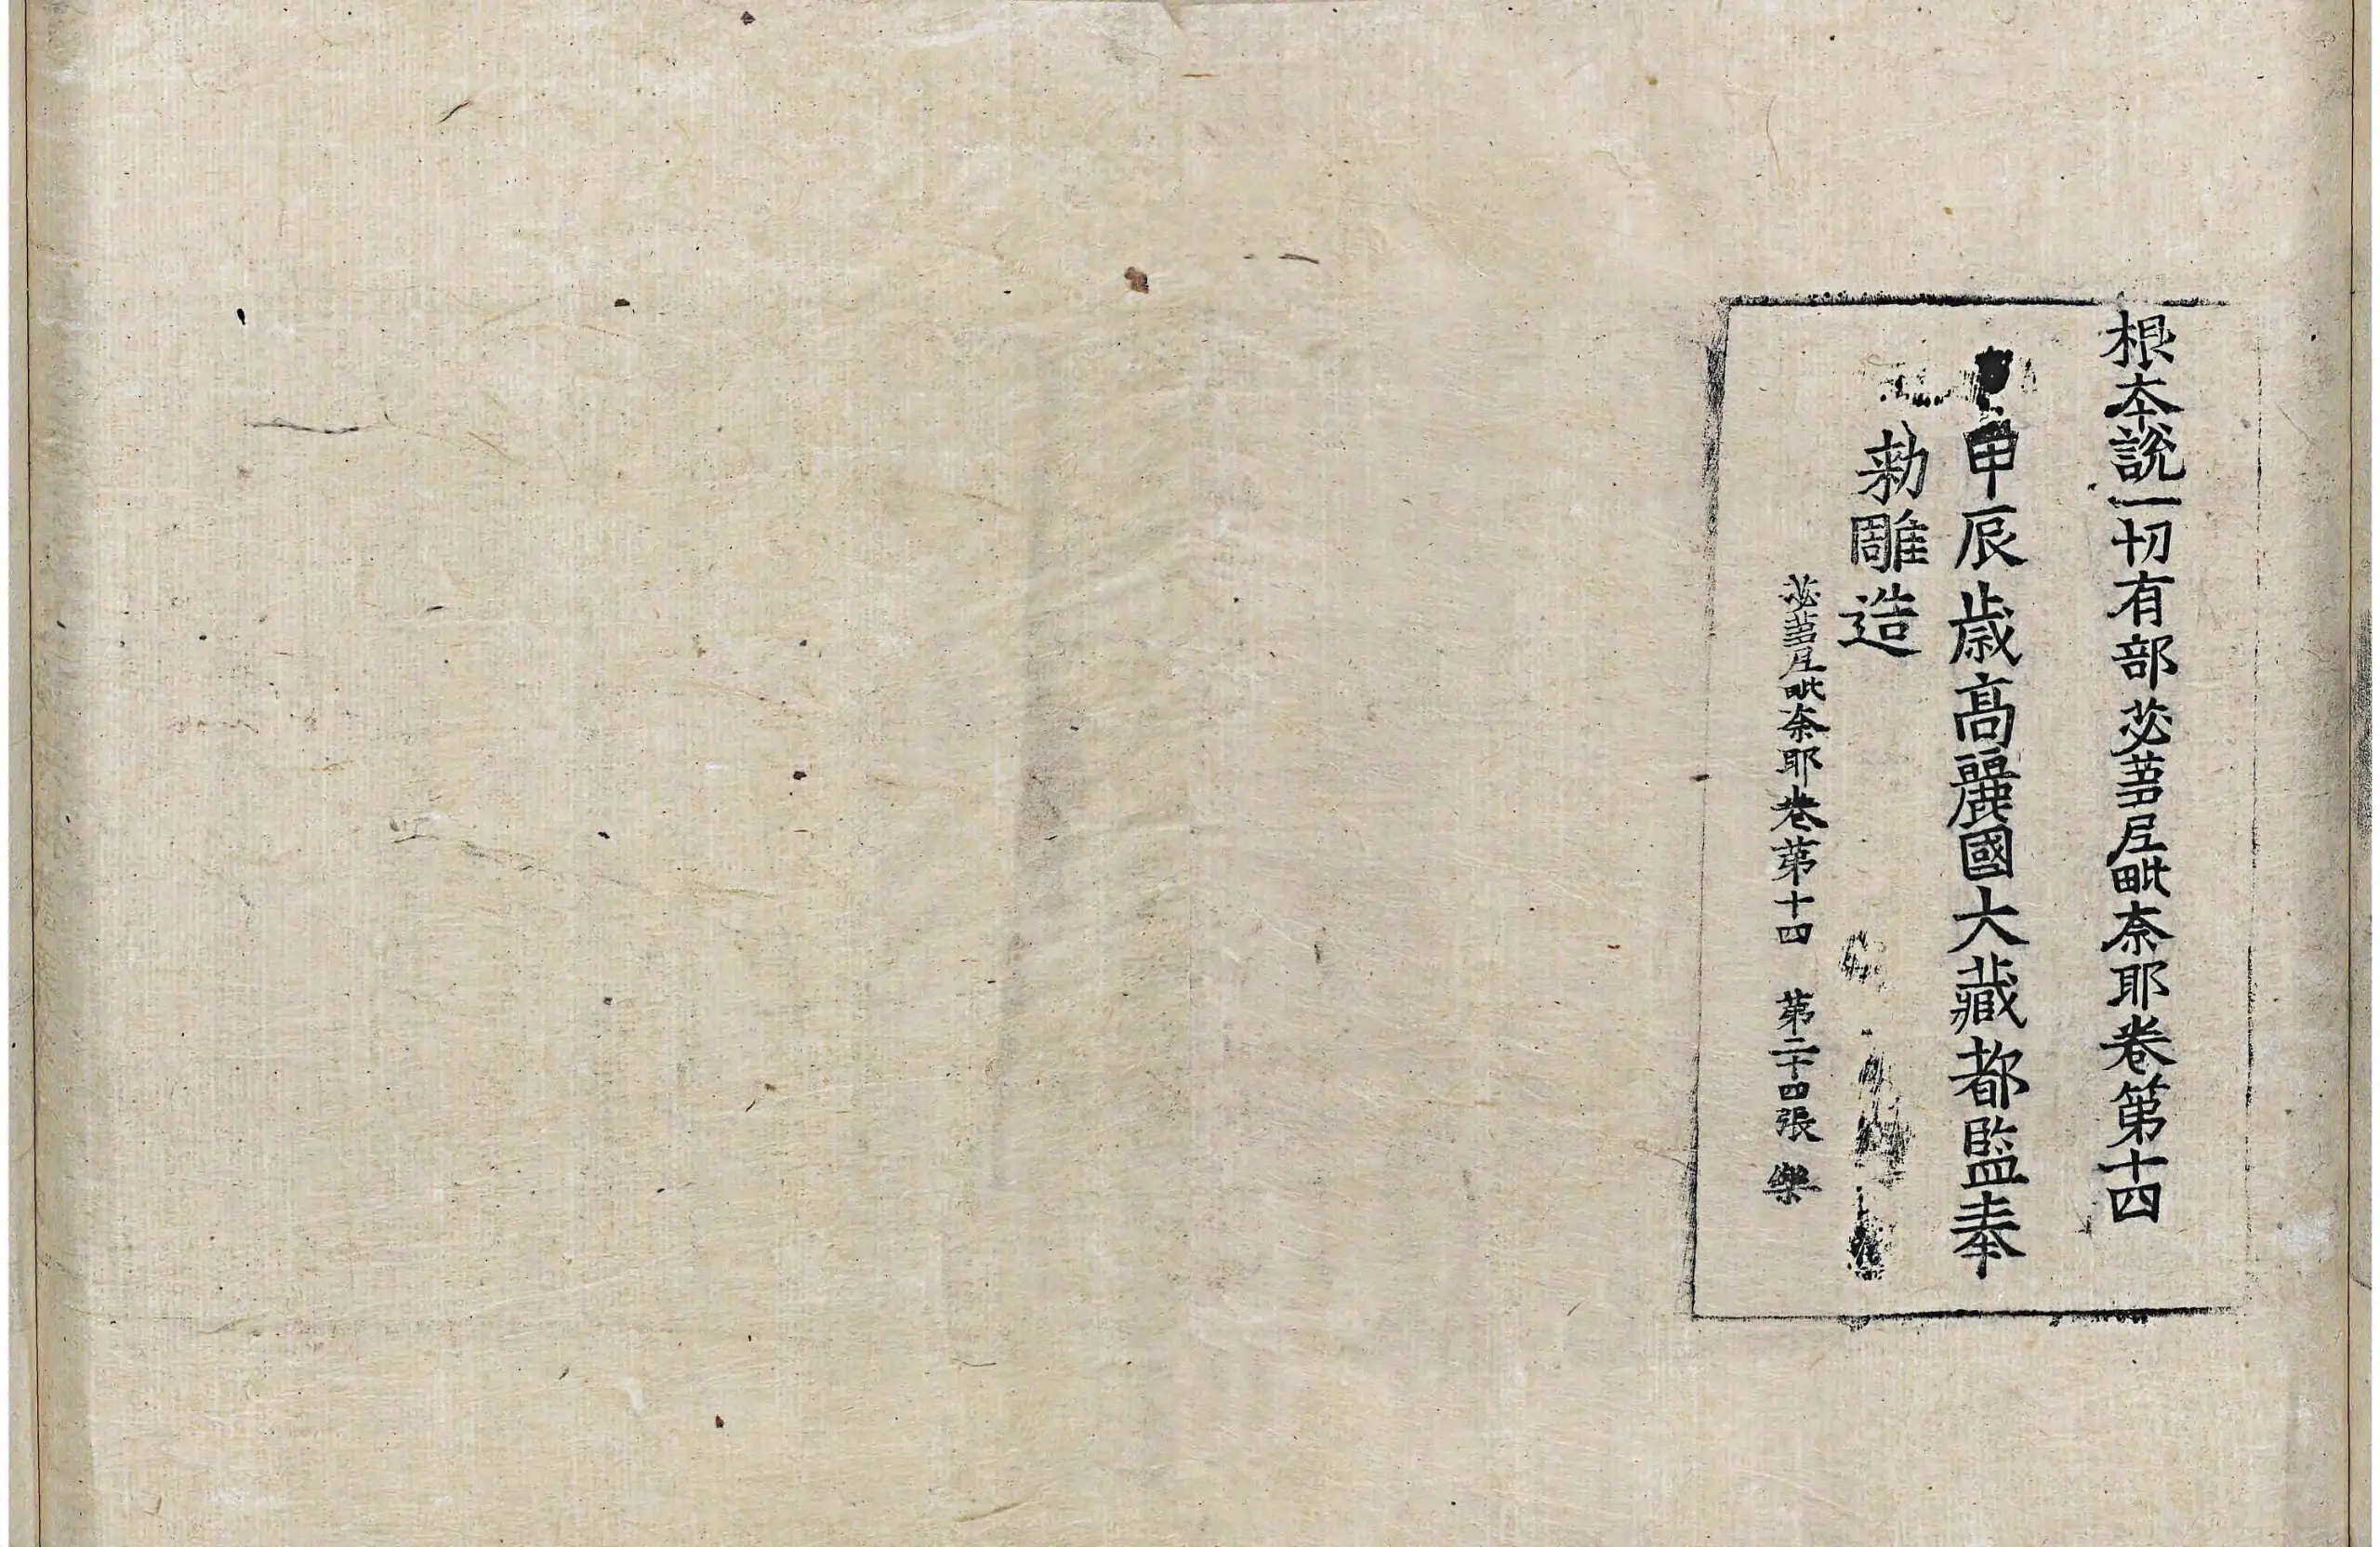 根本說一切有部苾芻尼毗奈耶卷第十四
甲辰歲高麗國大藏都監奉
勑雕造
苾芻尼毗奈耶卷第十四 第二十四張 樂